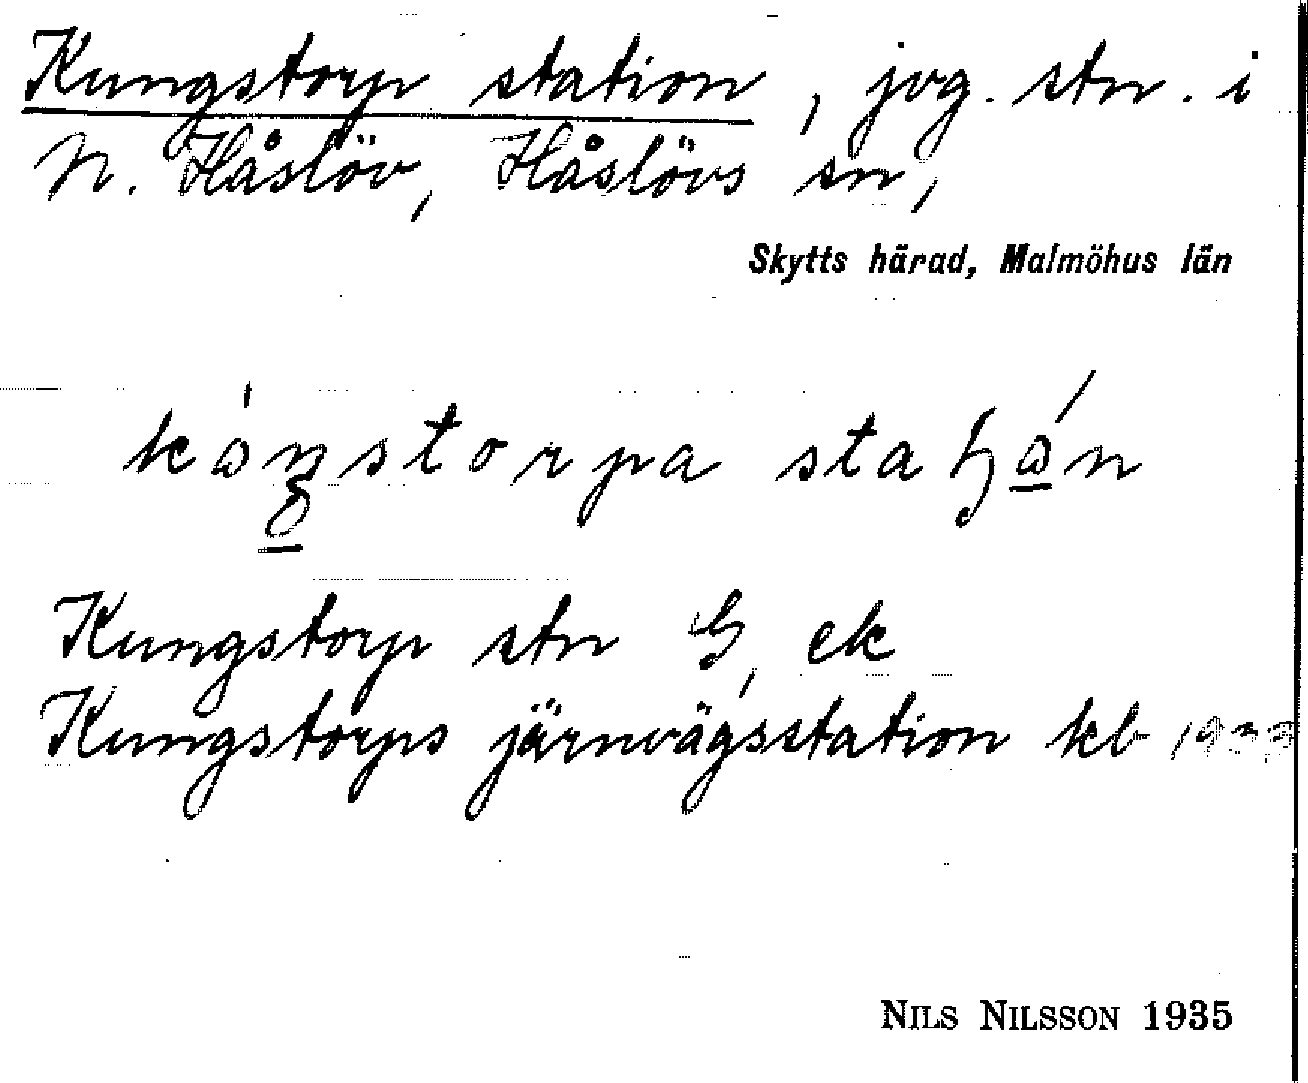 Kungstorp station, jvg. stn. i
N. Håslöv, Håslövs sn,
Skytts härad, Malmöhus län
stn G, ek
Kungstorp stn G, ek
Kungstorps järnvägsstation kb 1933
NILS NILSSON 1935